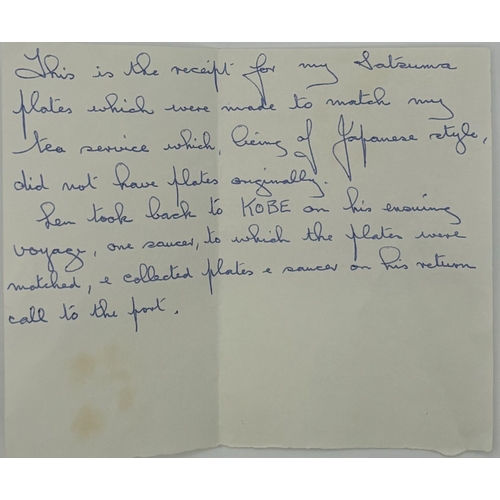 This is the receipt for my Satsuma
plates which were made to match my
tea service which, being of Japanese style,
did not have plates originally.
Len took back to KOBE on his ensuing
voyage, one saucer, to which the plates were
matched, e collected plates e saucer on his return
call to the port.